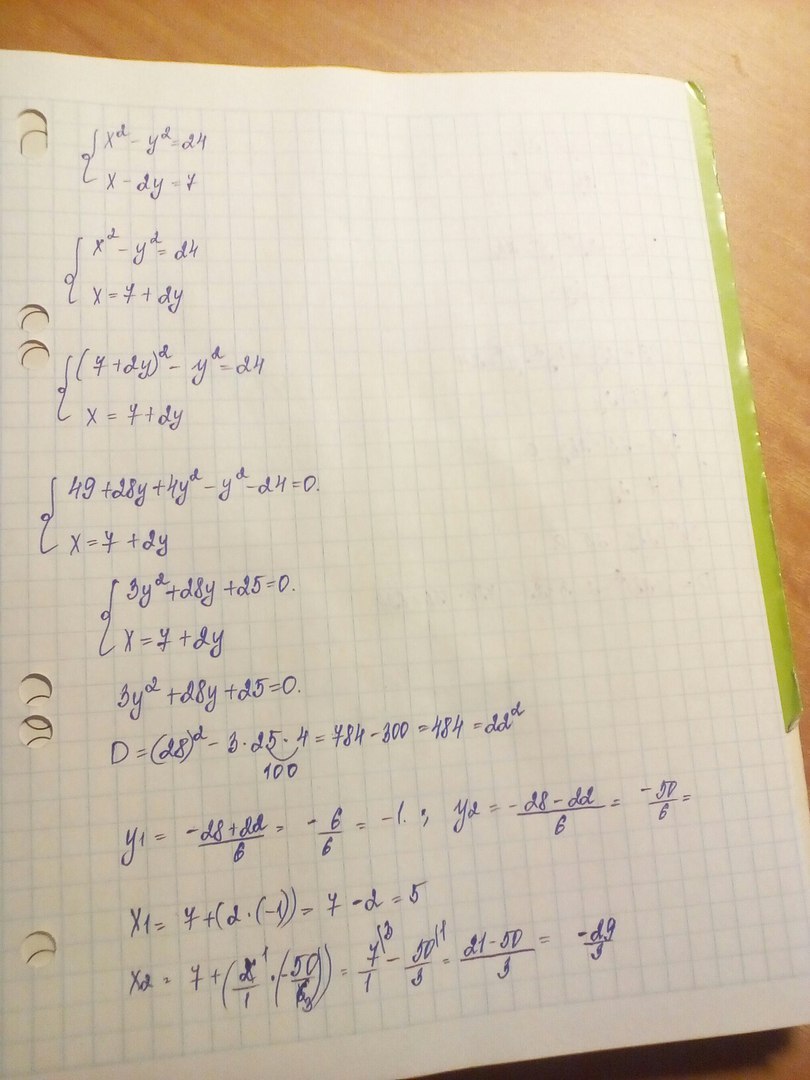 {x² - y² = 24
x - 2y = 7
{x² - y² = 24
x = 7 + 2y
{(7 + 2y)² - y² = 24
x = 7 + 2y
{49 + 28y + 4y² - y² - 24 = 0.
x = 7 + 2y
{3y² + 28y + 25 = 0.
x = 7 + 2y
3y² + 28y + 25 = 0.
D = (28)² - 3 · 25 · 4 = 784 - 300 = 484 = 22²
100
y1 = (-28 + 22)/6 = -6/6 = -1. ; y2 = (-28 - 22)/6 = -50/6 =
x1 = 7 + (2 · (-1)) = 7 - 2 = 5
x2 = 7 + (2¹/1 · (-50/6₃)) = 7/1 |3 - 50/3 |1 = (21 - 50)/3 = -29/3